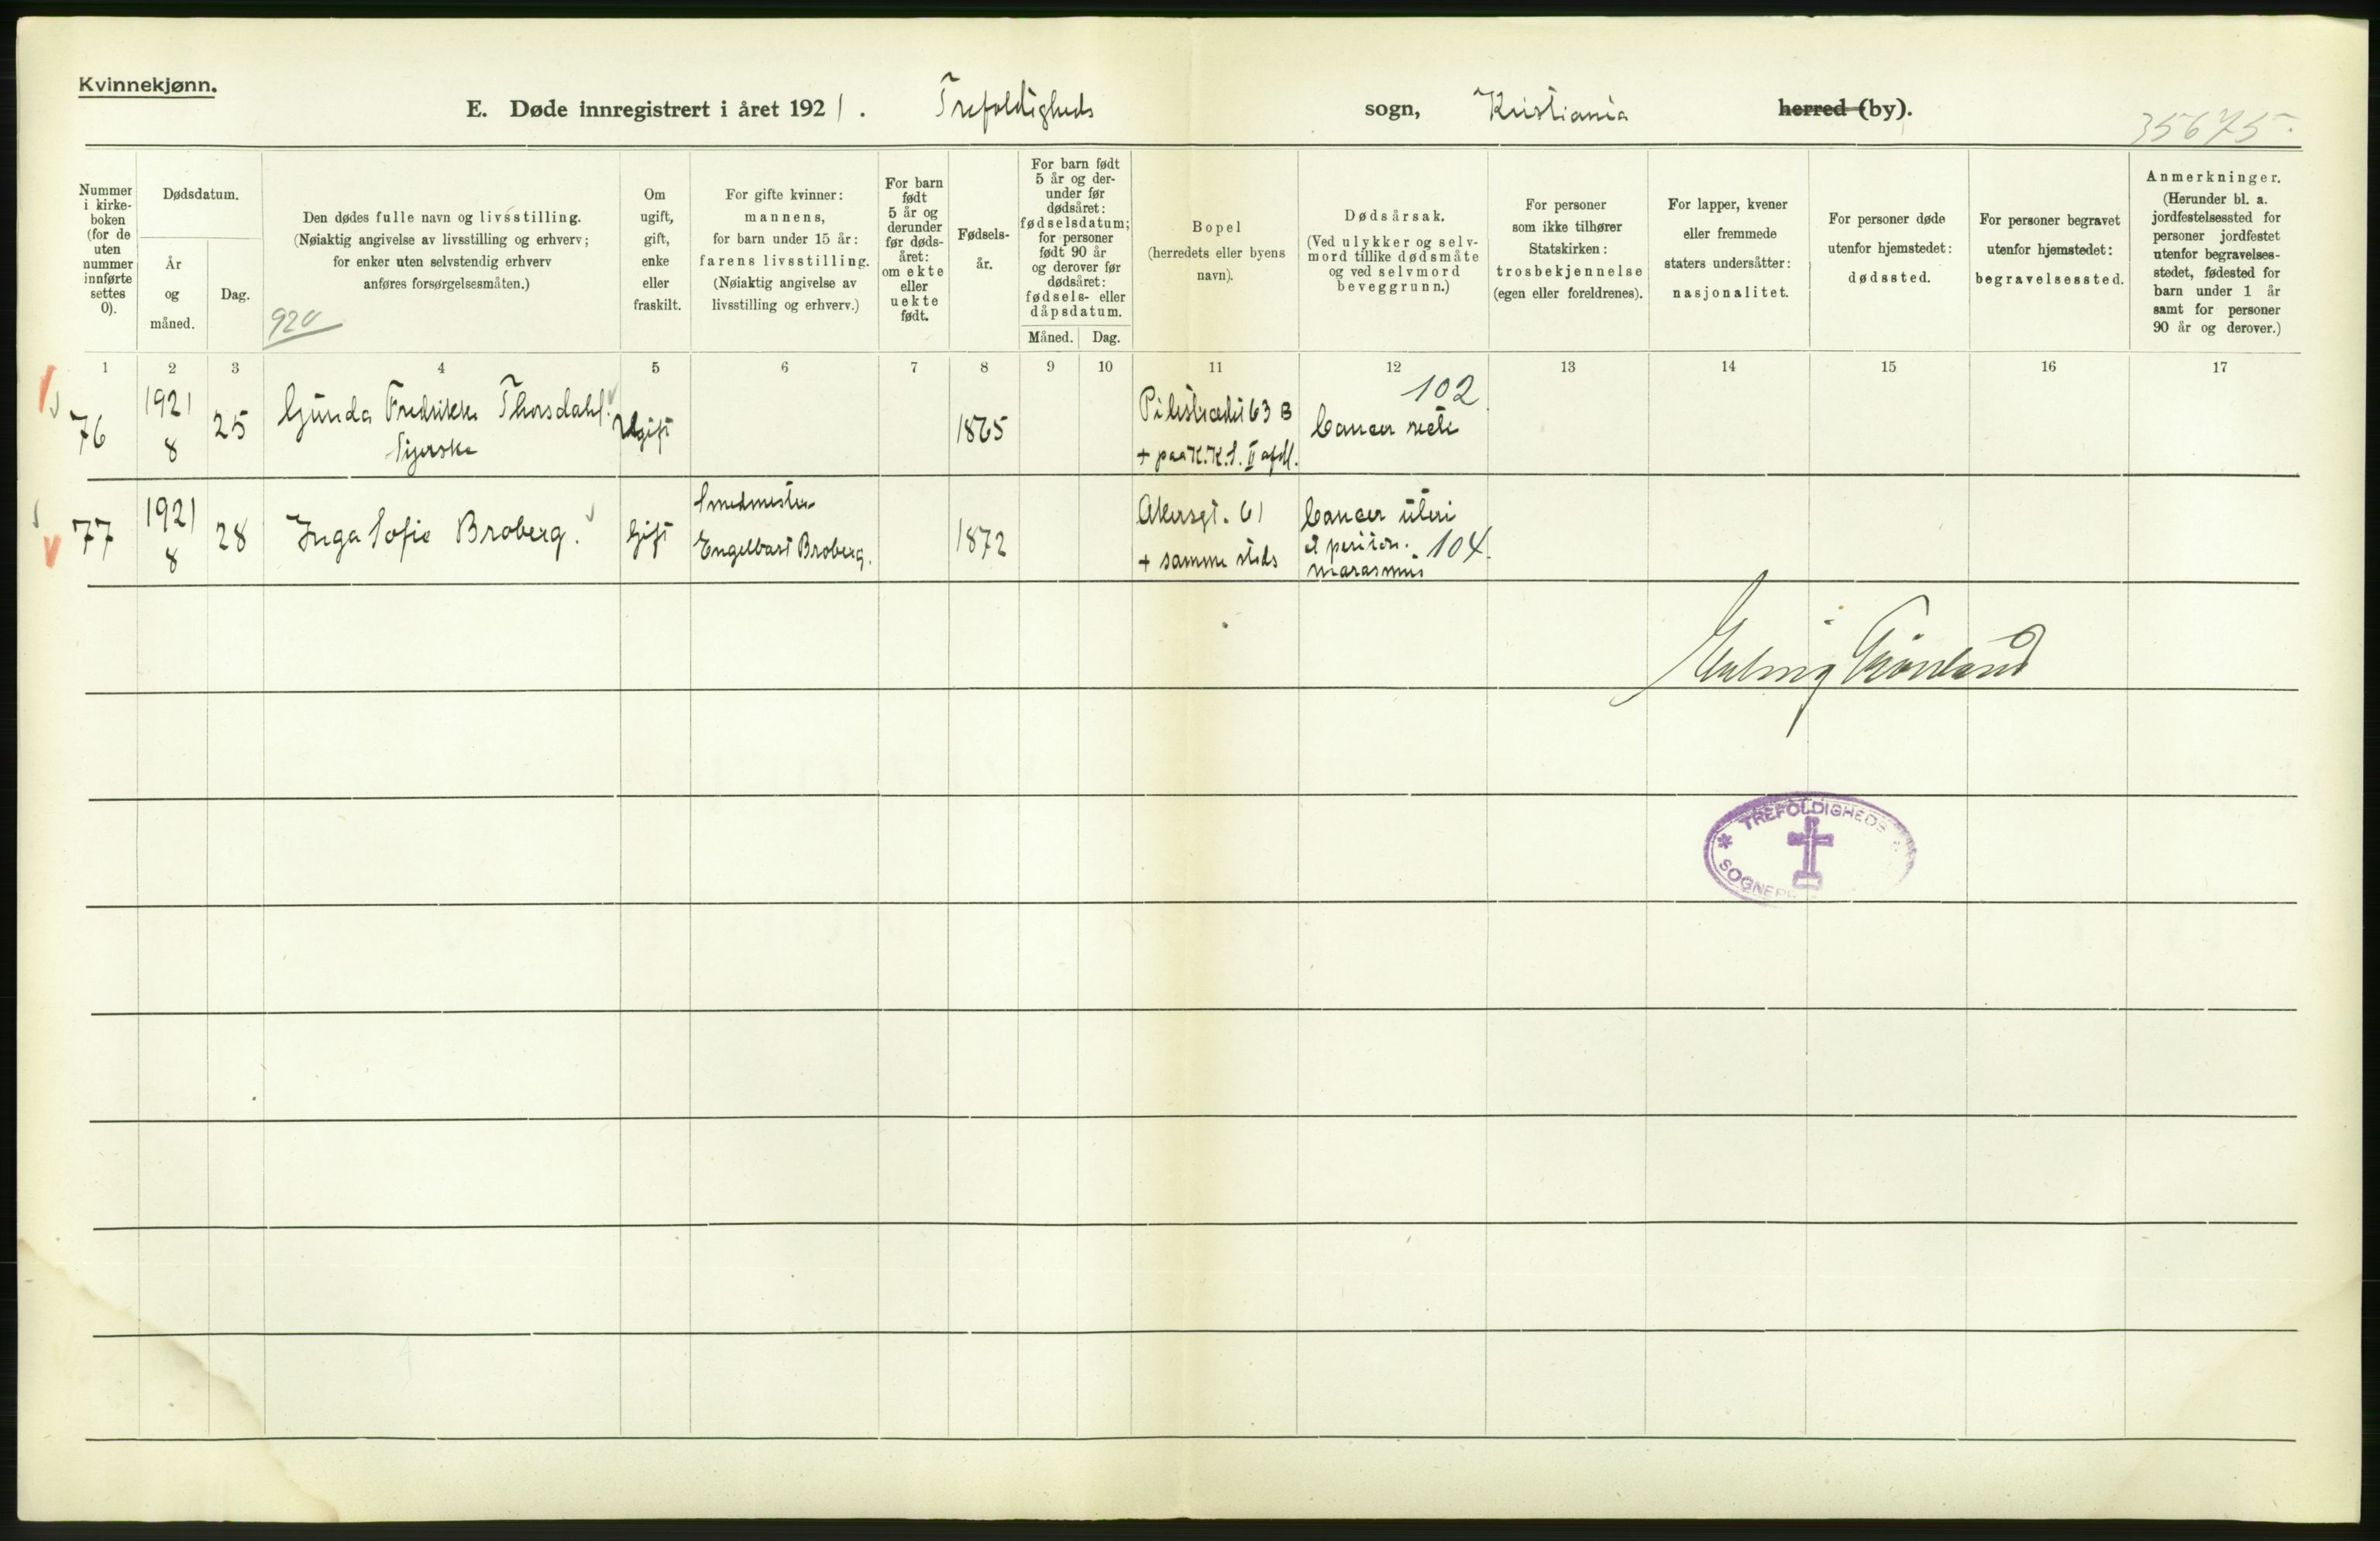 Kvinnekjønn.
E. Døde innregistrert i året 1921. Trefoldigheds sogn, Kristiania herred (by).
35675.
Nummer
i kirke-
boken
(for de
uten
nummer
innførte
settes
0).
Dødsdatum.
År
og
måned.
Dag.
Den dødes fulle navn og livsstilling.
(Nøiaktig angivelse av livsstilling og erhverv;
for enker uten selvstendig erhverv
anføres forsørgelsesmåten.)
920
Om
ugift,
gift,
enke
eller
fraskilt.
For gifte kvinner:
mannens,
for barn under 15 år:
farens livsstilling.
(Nøiaktig angivelse av
livsstilling og erhverv.)
For barn
født
5 år og
derunder
før døds-
året:
om ekte
eller
uekte
født.
Fødsels-
år.
For barn født
5 år og der-
under før
dødsåret:
fødselsdatum;
for personer
født 90 år
og derover før
dødsåret:
fødsels- eller
dåpsdatum.
Måned. Dag.
Bopel
(herredets eller byens
navn).
Dødsårsak.
(Ved ulykker og selv-
mord tillike dødsmåte
og ved selvmord
beveggrunn.)
For personer
som ikke tilhører
Statskirken:
trosbekjennelse
(egen eller foreldrenes).
For lapper, kvener
eller fremmede
staters undersåtter:
nasjonalitet.
For personer døde
utenfor hjemstedet:
dødssted.
For personer begravet
utenfor hjemstedet:
begravelsessted.
Anmerkninger.
(Herunder bl. a.
jordfestelsessted for
personer jordfestet
utenfor begravelses-
stedet, fødested for
barn under 1 år
samt for personer
90 år og derover.)
1 2 3 4 5 6 7 8 9 10 11 12 13 14 15 16 17
76
1921
8
25
Gunda Fredrikke Thorsdahl.
Syerske
Ugift
1865
Pilestrædet 63 B
+ paa K.K.S. II afdl.
102
Cancer recti
77
1921
8
28
Inga Sofie Broberg.
Gift
Smedmester
Engelbart Broberg.
1872
Akersgt. 61
+ samme steds
Cancer uteri
et periton. 104.
marasmus
Erling Grönland
TREFOLDIGHEDS
SOGNEPR